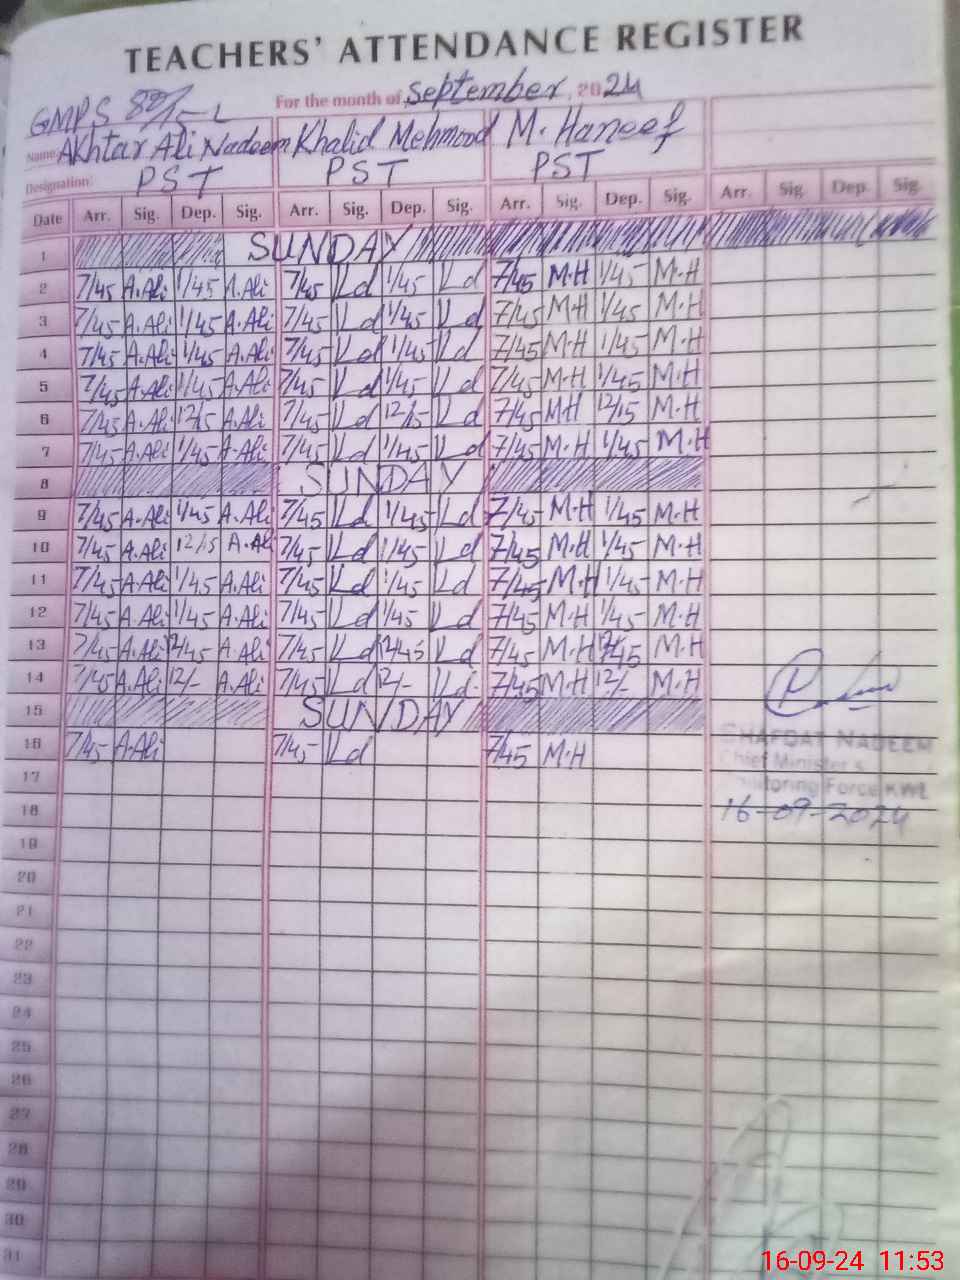 TEACHERS' ATTENDANCE REGISTER
For the month of September 2024
GMPS
Name: Akhtar Ali Nadeem Khalid Mehmood M. Haneef
Designation: PST PST PST
Date Arr. Sig. Dep. Sig. Arr. Sig. Dep. Sig. Arr. Sig. Dep. Sig. Arr. Sig. Dep. Sig.
1 SUNDAY
2 7/45 A.Ali 1/45 A.Ali 7/45 Kd 1/45 Kd 7/45 M.H 1/45 M.H
3 7/45 A.Ali 1/45 A.Ali 7/45 Kd 1/45 Kd 7/45 M.H 1/45 M.H
4 7/45 A.Ali 1/45 A.Ali 7/45 Kd 1/45 Kd 7/45 M.H 1/45 M.H
5 7/45 A.Ali 1/45 A.Ali 7/45 Kd 1/45 Kd 7/45 M.H 1/45 M.H
6 7/45 A.Ali 12/15 A.Ali 7/45 Kd 12/15 Kd 7/45 M.H 12/15 M.H
7 7/45 A.Ali 1/45 A.Ali 7/45 Kd 1/45 Kd 7/45 M.H 1/45 M.H
8 SUNDAY
9 7/45 A.Ali 1/45 A.Ali 7/45 Kd 1/45 Kd 7/45 M.H 1/45 M.H
10 7/45 A.Ali 12/15 A.Ali 7/45 Kd 1/45 Kd 7/45 M.H 1/45 M.H
11 7/45 A.Ali 1/45 A.Ali 7/45 Kd 1/45 Kd 7/45 M.H 1/45 M.H
12 7/45 A.Ali 1/45 A.Ali 7/45 Kd 1/45 Kd 7/45 M.H 1/45 M.H
13 7/45 A.Ali A.Ali 7/45 Kd 12/45 Kd 7/45 M.H M.H
14 7/45 A.Ali 12/- A.Ali 7/45 Kd 12/- Kd 7/45 M.H 12/- M.H
15 SUNDAY
16 7/45 A.Ali 7/45 Kd 7/45 M.H
SHAFQAT NADEEM
Chief Minister's
Monitoring Force KWL
16-09-2024
17
18
19
20
21
22
23
24
25
26
27
28
29
30
31
16-09-24 11:53